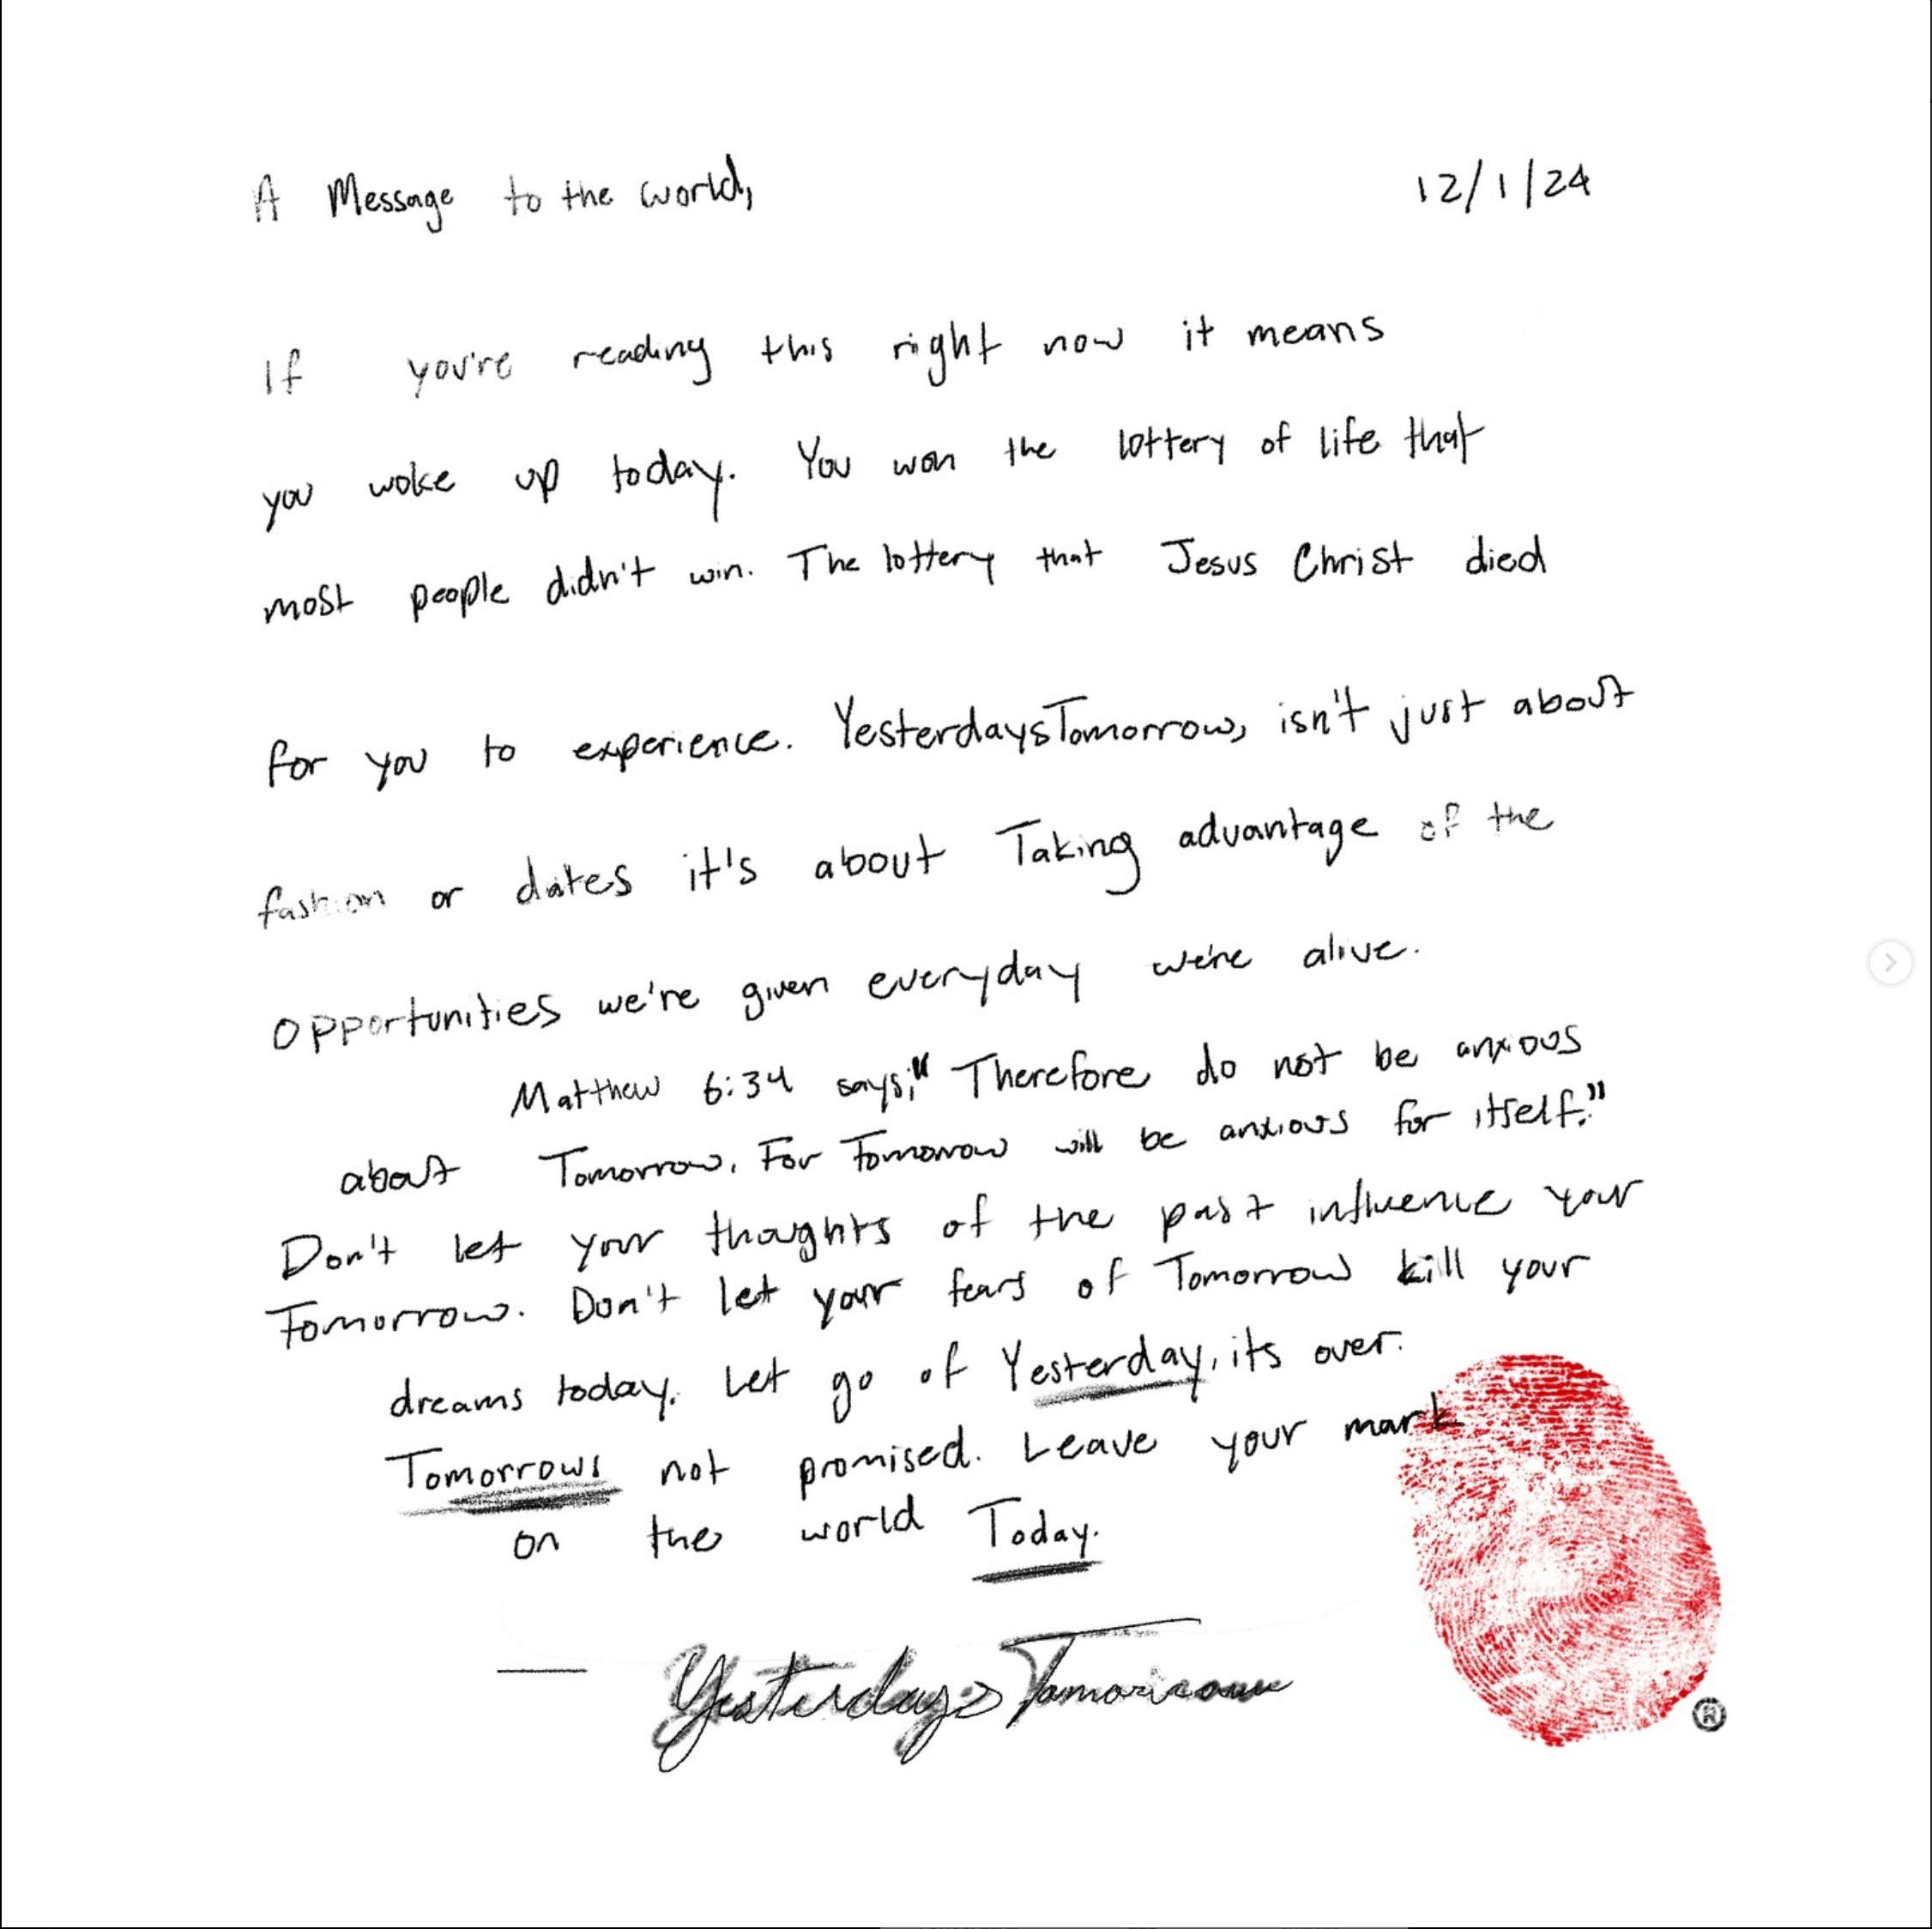 A Message to the world, 12/1/24
If you're reading this right now it means
you woke up today. You won the lottery of life that
most people didn't win. The lottery that Jesus Christ died
for you to experience. YesterdaysTomorrow, isn't just about
fashion or dates it's about Taking advantage of the
opportunities we're given everyday we're alive.
Matthew 6:34 says;" Therefore do not be anxious
about Tomorrow. For Tomorrow will be anxious for itself."
Don't let your thoughts of the past influence your
Tomorrow. Don't let your fears of Tomorrow kill your
dreams today. Let go of Yesterday, its over.
Tomorrows not promised. Leave your mark
on the world Today.
— YesterdaysTomorrow
®